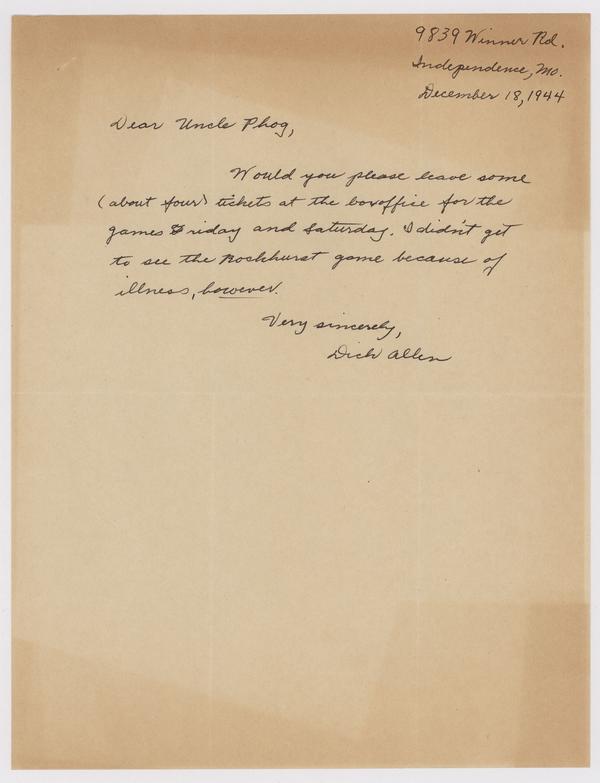 9839 Winner Rd.
Independence, Mo.
December 18, 1944
Dear Uncle Phog,
Would you please leave some
(about four) tickets at the boxoffice for the
games Friday and Saturday. I didn't get
to see the Rockhurst game because of
illness, however.
Very sincerely,
Dick Allen